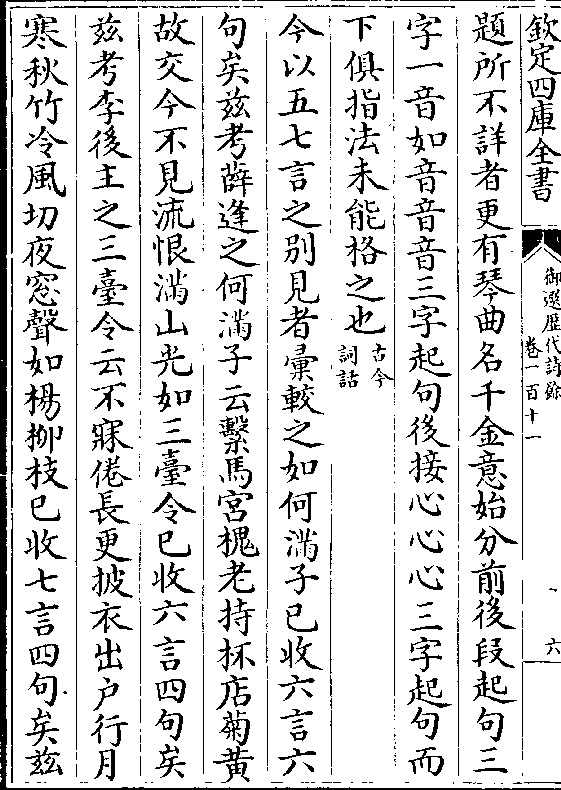 欽定四庫全書
御選歷代詩餘
卷一百十一
六
題所不詳者更有琴曲名千金意始分前後段起句三
字一音如音音音三字起句後接心心心三字起句而
下俱指法未能格之也古今詞話
今以五七言之別見者彚較之如何滿子已收六言六
句矣兹考薛逢之何滿子云繫馬宮槐老持杯店菊黃
故交今不見流恨滿山光如三臺令已收六言四句矣
兹考李後主之三臺令云不寐倦長更披衣出户行月
寒秋竹冷風切夜窓聲如楊栁枝已收七言四句矣兹